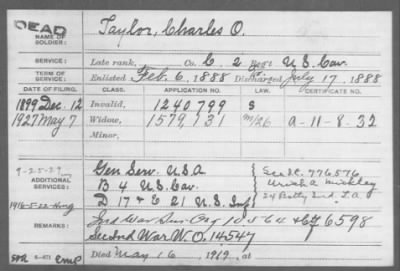 DEAD
NAME OF SOLDIER: Taylor, Charles O.
SERVICE: Late rank, Co. C. 2 Reg't U.S. Cav.
TERM OF SERVICE: Enlisted Feb. 6, 1888 Discharged July 17, 1888
DATE OF FILING. CLASS. APPLICATION NO. CERTIFICATE NO.
1899 Dec. 12 Invalid, 1240799 S
1927 May 7 Widow, 1579731 a-11-8-32
Minor,
9-2.5-29
ADDITIONAL SERVICES: Gen Serv. U.S.A
B 4 U.S. Cav.
D 17 & E 21 U.S. Inf
See Sc. 776576
24 Batty Ind. L.A
Ind War Sur Org 10564 6598
See Ind War W.O. 14547
Died May 16, 1919, at